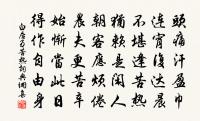 頭痛汗盈巾
連宵復達晨
不堪逢苦熱
猶賴是閒人
朝客應煩倦
農夫更苦辛
始慚當此日
得作自由身
白居易苦熱詞典網集